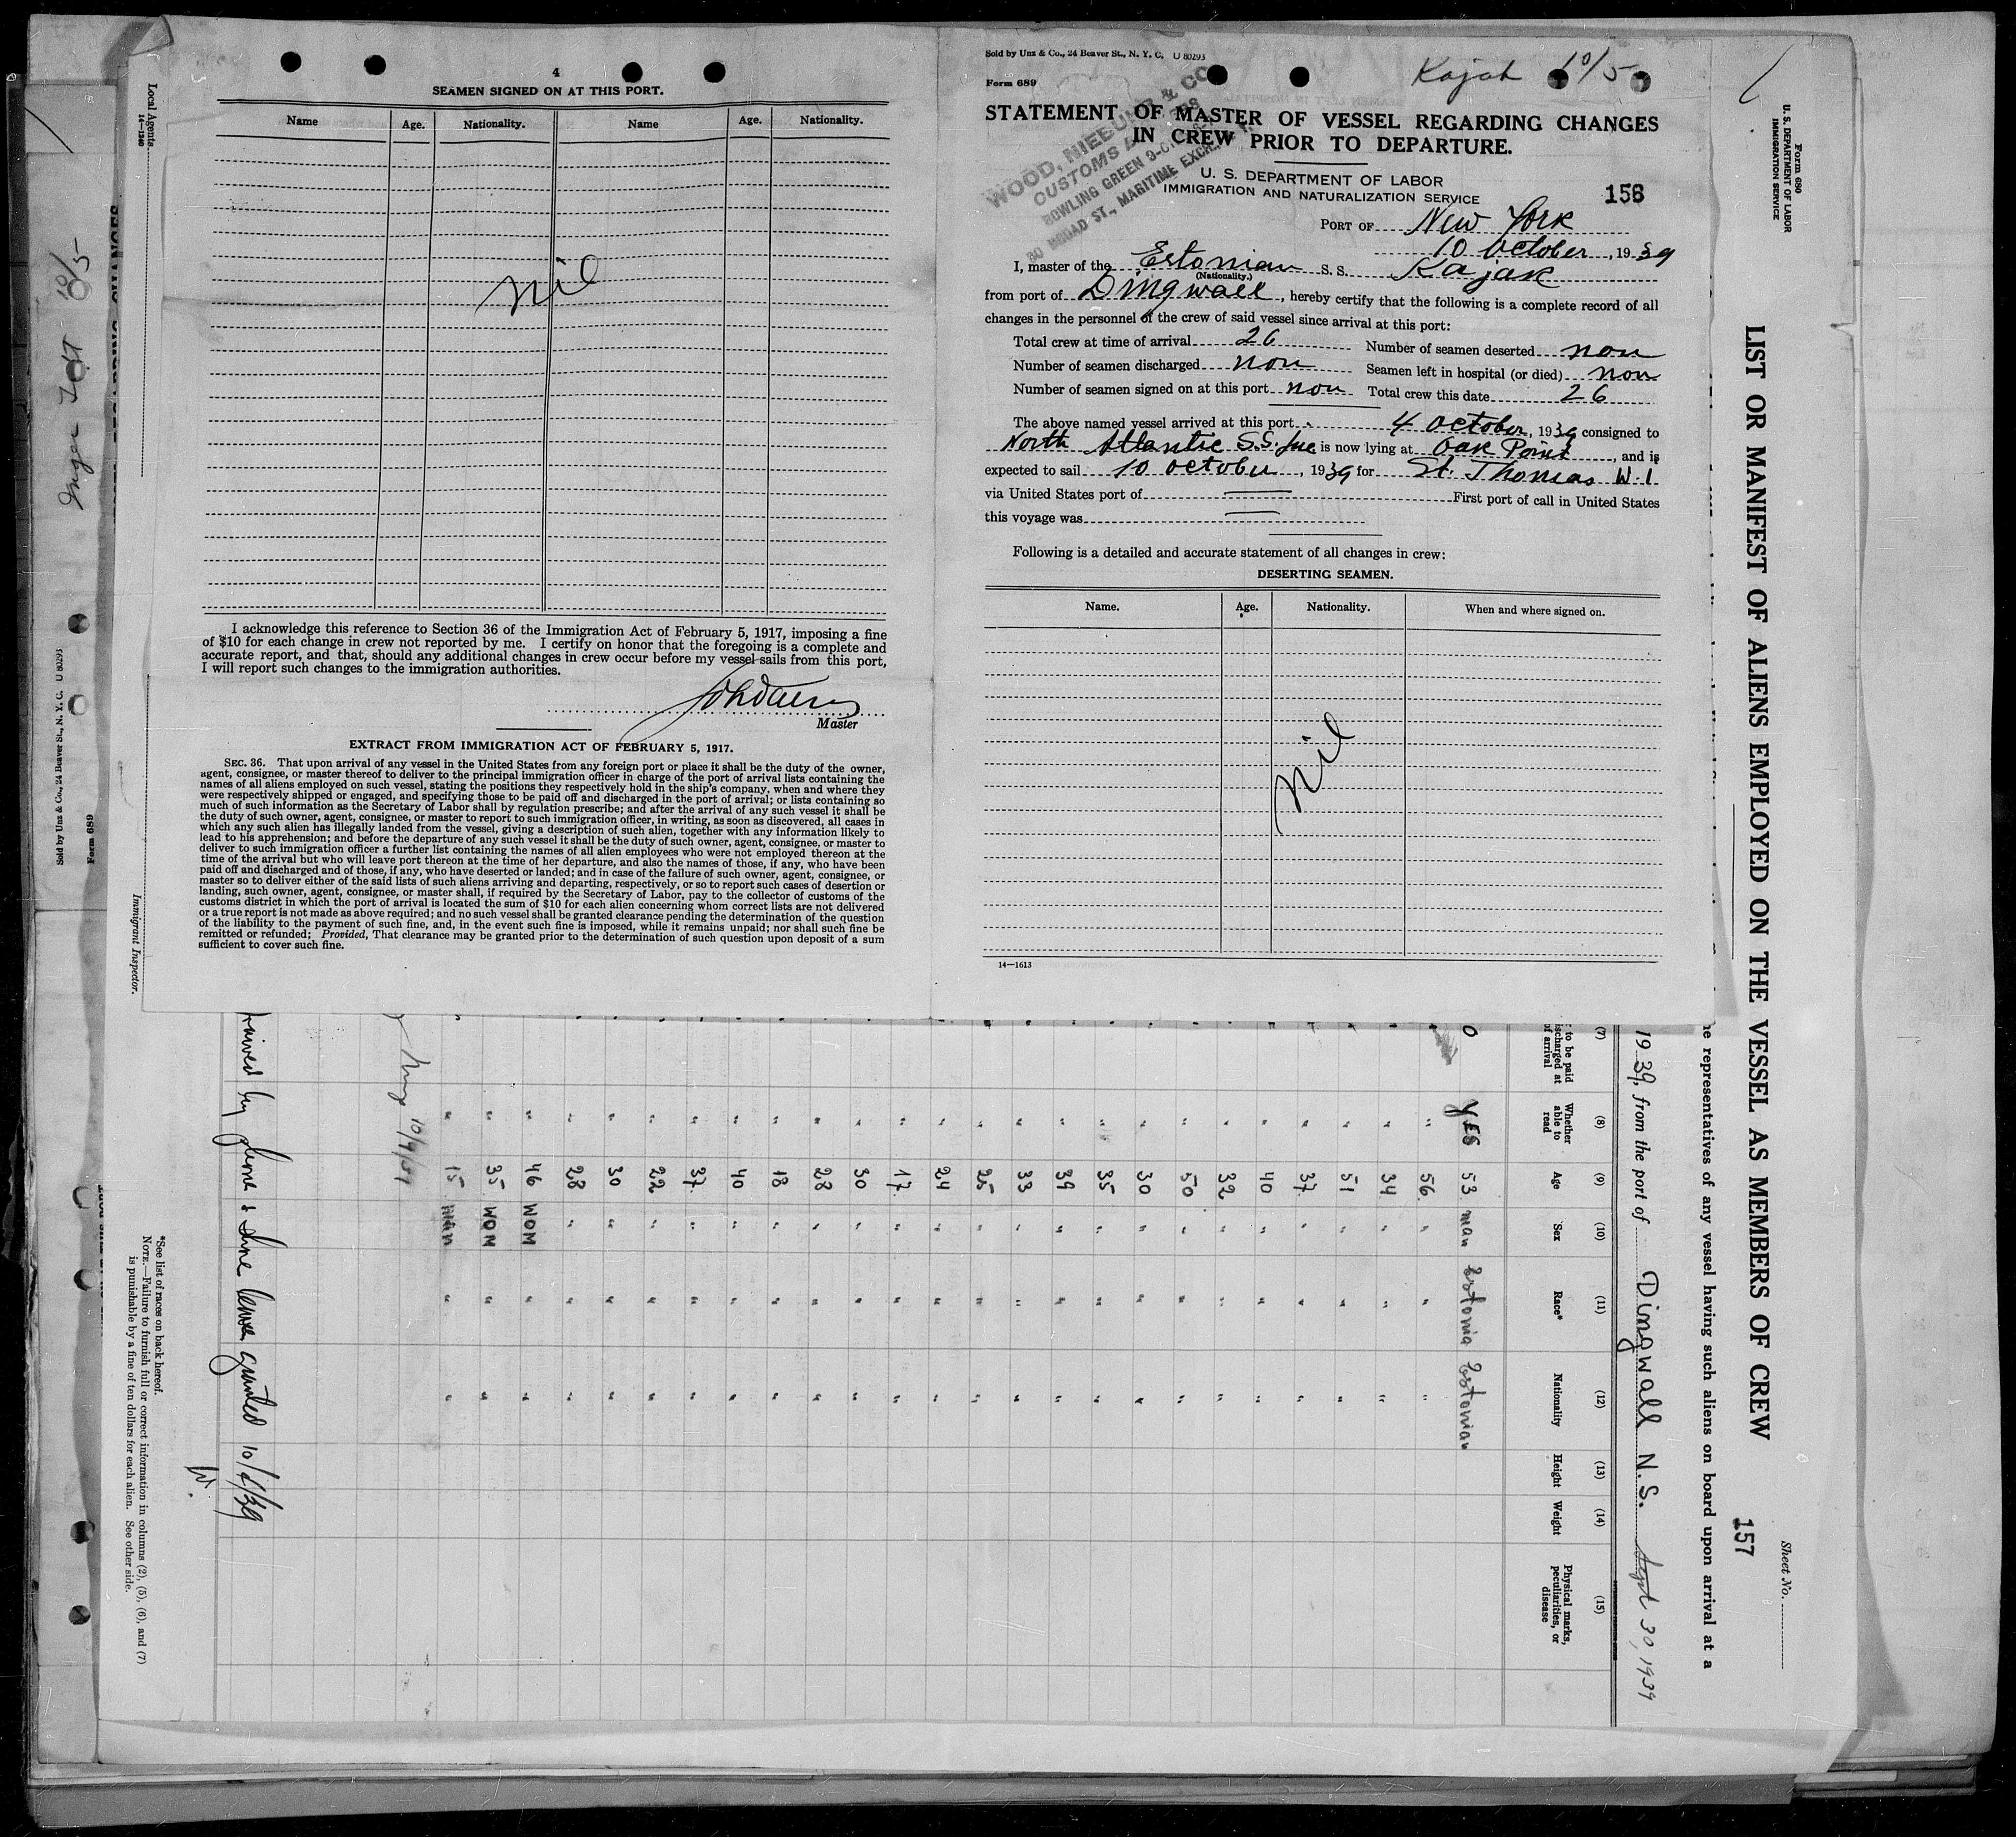 4
SEAMEN SIGNED ON AT THIS PORT.
Name Age. Nationality. Name Age. Nationality.
Nil
I acknowledge this reference to Section 36 of the Immigration Act of February 5, 1917, imposing a fine
of $10 for each change in crew not reported by me. I certify on honor that the foregoing is a complete and
accurate report, and that, should any additional changes in crew occur before my vessel sails from this port,
I will report such changes to the immigration authorities.
Master
EXTRACT FROM IMMIGRATION ACT OF FEBRUARY 5, 1917.
SEC. 36. That upon arrival of any vessel in the United States from any foreign port or place it shall be the duty of the owner,
agent, consignee, or master thereof to deliver to the principal immigration officer in charge of the port of arrival lists containing the
names of all aliens employed on such vessel, stating the positions they respectively hold in the ship's company, when and where they
were respectively shipped or engaged, and specifying those to be paid off and discharged in the port of arrival; or lists containing so
much of such information as the Secretary of Labor shall by regulation prescribe; and after the arrival of any such vessel it shall be
the duty of such owner, agent, consignee, or master to report to such immigration officer, in writing, as soon as discovered, all cases in
which any such alien has illegally landed from the vessel, giving a description of such alien, together with any information likely to
lead to his apprehension; and before the departure of any such vessel it shall be the duty of such owner, agent, consignee, or master to
deliver to such immigration officer a further list containing the names of all alien employees who were not employed thereon at the
time of the arrival but who will leave port thereon at the time of her departure, and also the names of those, if any, who have been
paid off and discharged and of those, if any, who have deserted or landed; and in case of the failure of such owner, agent, consignee, or
master so to deliver either of the said lists of such aliens arriving and departing, respectively, or so to report such cases of desertion or
landing, such owner, agent, consignee, or master shall, if required by the Secretary of Labor, pay to the collector of customs of the
customs district in which the port of arrival is located the sum of $10 for each alien concerning whom correct lists are not delivered
or a true report is not made as above required; and no such vessel shall be granted clearance pending the determination of the question
of the liability to the payment of such fine, and, in the event such fine is imposed, while it remains unpaid; nor shall such fine be
remitted or refunded; Provided, That clearance may be granted prior to the determination of such question upon deposit of a sum
sufficient to cover such fine.
Sold by Unz & Co., 24 Beaver St., N. Y. C. U 80293
Form 689
Kajak 10/5
STATEMENT OF MASTER OF VESSEL REGARDING CHANGES
IN CREW PRIOR TO DEPARTURE.
U. S. DEPARTMENT OF LABOR
IMMIGRATION AND NATURALIZATION SERVICE
156
PORT OF New York
10 October, 1939
I, master of the Estonian S. S. Kajak
(Nationality.)
from port of Dingwall, hereby certify that the following is a complete record of all
changes in the personnel of the crew of said vessel since arrival at this port:
Total crew at time of arrival 26 Number of seamen deserted non
Number of seamen discharged non Seamen left in hospital (or died) non
Number of seamen signed on at this port non Total crew this date 26
The above named vessel arrived at this port 4 October, 1939 consigned to
North Atlantic S.S. Inc is now lying at Oak Point, and is
expected to sail 10 October, 1939 for St. Thomas W.I
via United States port of First port of call in United States
this voyage was
Following is a detailed and accurate statement of all changes in crew:
DESERTING SEAMEN.
Name. Age. Nationality. When and where signed on.
Nil
14—1613
Form 680
U. S. DEPARTMENT OF LABOR
IMMIGRATION SERVICE
LIST OR MANIFEST OF ALIENS EMPLOYED ON THE VESSEL AS MEMBERS OF CREW
157
Sheet No.
representatives of any vessel having such aliens on board upon arrival at a
1939, from the port of Dingwall N.S. Sept 30, 1939
(7) (8) (9) (10) (11) (12) (13) (14) (15)
to be paid
discharged at
of arrival
Whether able to read
Age
Sex
Race*
Nationality
Height
Weight
Physical marks, peculiarities, or disease
YES 53 man Estonia Estonian
" 56 " " "
" 34 " " "
" 51 " " "
" 37 " " "
" 40 " " "
" 32 " " "
" 50 " " "
" 30 " " "
" 35 " " "
" 39 " " "
" 33 " " "
" 25 " " "
" 24 " " "
" 17 " " "
" 30 " " "
" 28 " " "
" 18 " " "
" 40 " " "
" 37 " " "
" 22 " " "
" 30 " " "
" 28 " " "
" 46 WOM " "
" 35 WOM " "
" 15 man " "
granted 10/4/39
*See list of races on back hereof.
NOTE.—Failure to furnish full or correct information in columns (2), (5), (6), and (7)
is punishable by a fine of ten dollars for each alien. See other side.
Local Agents
14—1240
Immigrant Inspector.
Sold by Unz & Co., 24 Beaver St., N. Y. C. U 80293
Form 689
10/5